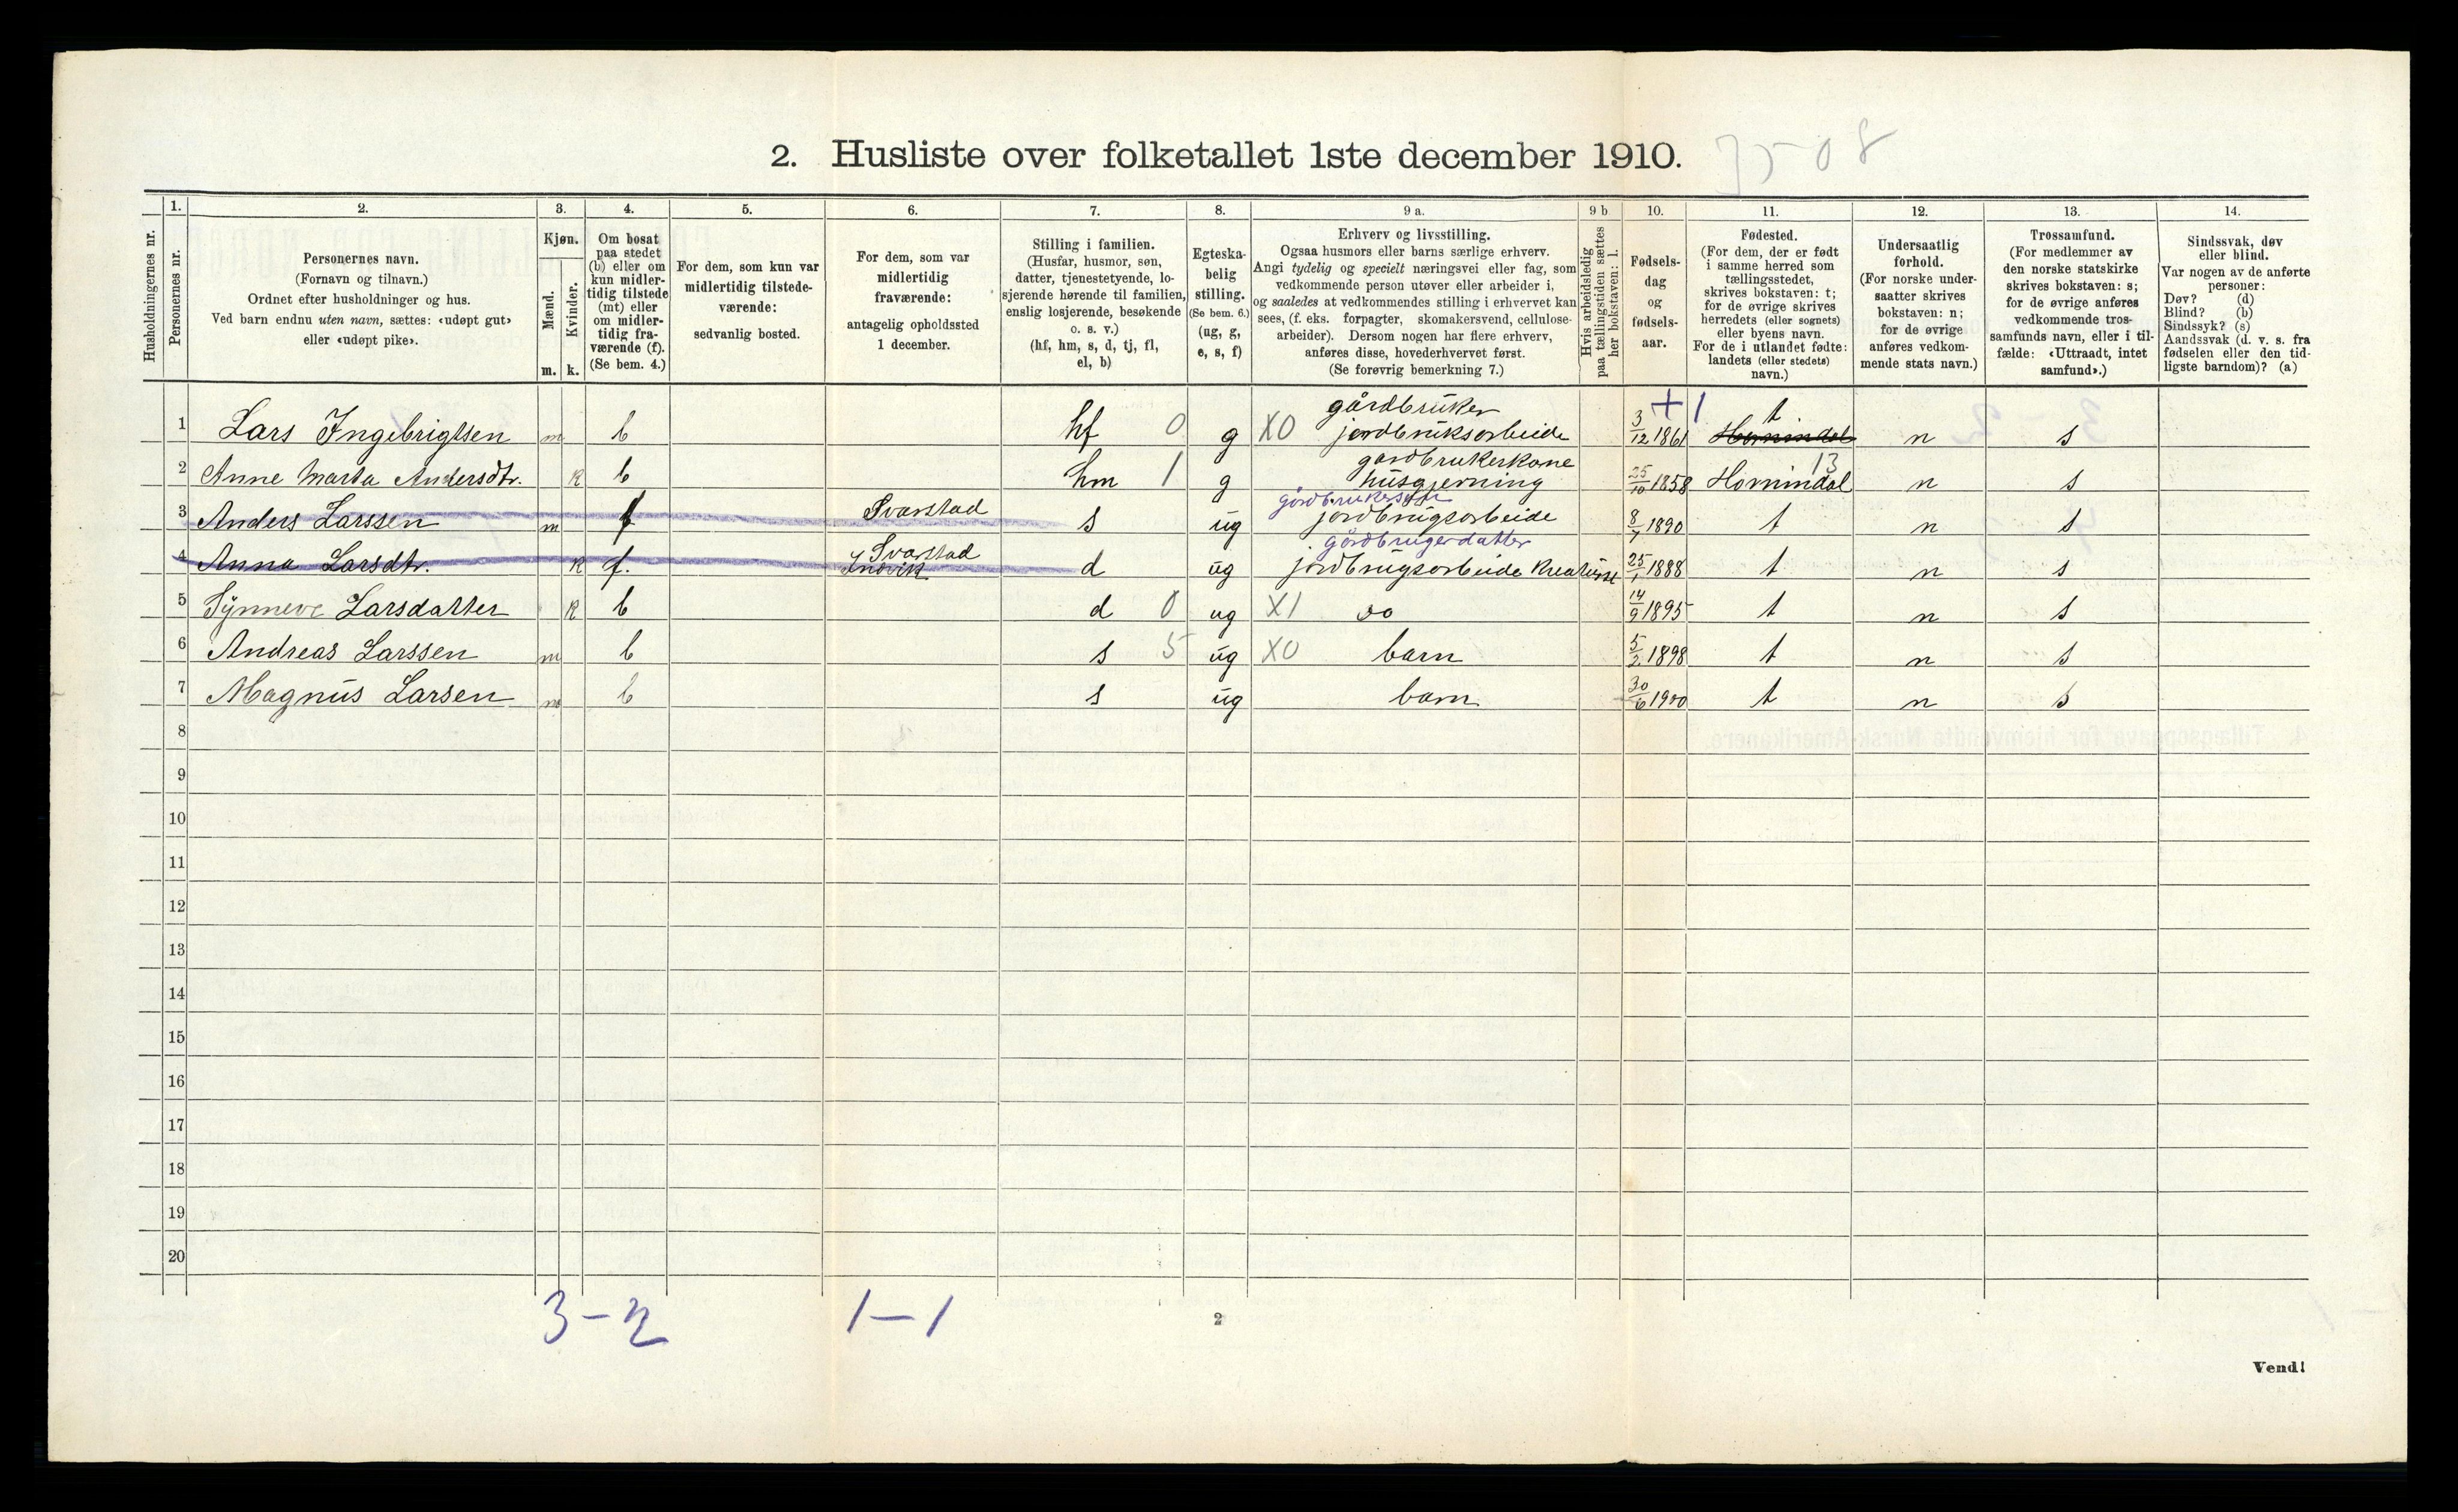 2. Husliste over folketallet 1ste december 1910.
Husholdningernes nr.
1.
Personernes nr.
2.
Personernes navn.
(Fornavn og tilnavn.)
Ordnet efter husholdninger og hus.
Ved barn endnu uten navn, sættes: «udøpt gut»
eller «udøpt pike».
3.
Kjøn.
Mænd.
Kvinder.
m. k.
4.
Om bosat
paa stedet
(b) eller om
kun midler-
tidig tilstede
(mt) eller
om midler-
tidig fra-
værende (f).
(Se bem. 4.)
5.
For dem, som kun var
midlertidig tilstede-
værende:
sedvanlig bosted.
6.
For dem, som var
midlertidig
fraværende:
antagelig opholdssted
1 december.
7.
Stilling i familien.
(Husfar, husmor, søn,
datter, tjenestetyende, lo-
sjerende hørende til familien,
enslig losjerende, besøkende
o. s. v.)
(hf, hm, s, d, tj, fl,
el, b)
8.
Egteska-
belig
stilling.
(Se bem. 6.)
(ug, g,
e, s, f)
9 a.
Erhverv og livsstilling.
Ogsaa husmors eller barns særlige erhverv.
Angi tydelig og specielt næringsvei eller fag, som
vedkommende person utøver eller arbeider i,
og saaledes at vedkommendes stilling i erhvervet kan
sees, (f. eks. forpagter, skomakersvend, cellulose-
arbeider). Dersom nogen har flere erhverv,
anføres disse, hovederhvervet først.
(Se forøvrig bemerkning 7.)
9 b
Hvis arbeidsledig
paa tællingstiden sættes
her bokstaven: l.
10.
Fødsels-
dag
og
fødsels-
aar.
11.
Fødested.
(For dem, der er født
i samme herred som
tællingsstedet,
skrives bokstaven: t;
for de øvrige skrives
herredets (eller sognets)
eller byens navn.
For de i utlandet fødte:
landets (eller stedets)
navn.)
12.
Undersaatlig
forhold.
(For norske under-
saatter skrives
bokstaven: n;
for de øvrige
anføres vedkom-
mende stats navn.)
13.
Trossamfund.
(For medlemmer av
den norske statskirke
skrives bokstaven: s;
for de øvrige anføres
vedkommende tros-
samfunds navn, eller i til-
fælde: «Uttraadt, intet
samfund».)
14.
Sindssvak, døv
eller blind.
Var nogen av de anførte
personer:
Døv? (d)
Blind? (b)
Sindssyk? (s)
Aandssvak (d. v. s. fra
fødselen eller den tid-
ligste barndom)? (a)
gårdbruker + 1 t
1 Lars Ingebrigtsen m b hf 0 g X0 jordbruksarbeide 3/12 1861 Hornindal n s
gardbrukerkone 13
2 Anne Marta Andersdtr. k b hm 1 g husgjerning 25/10 1858 Hornindal n s
gårdbrukersøn
3 Anders Larssen m f Svarstad s ug jordbrugsarbeide 8/7 1890 t n s
Svarstad gårdbrugerdatter
4 Anna Larsdtr. k f. Indvik d ug jordbrugsarbeide 25/1 1888 t n s
5 Synneve Larsdatter k b d 0 ug X1 do 14/9 1895 t n s
6 Andreas Larssen m b s 5 ug X0 barn 5/2 1898 t n s
7 Magnus Larsen m b s ug barn 30/6 1900 t n s
8
9
10
11
12
13
14
15
16
17
18
19
20
3-2 1-1
2
Vend!